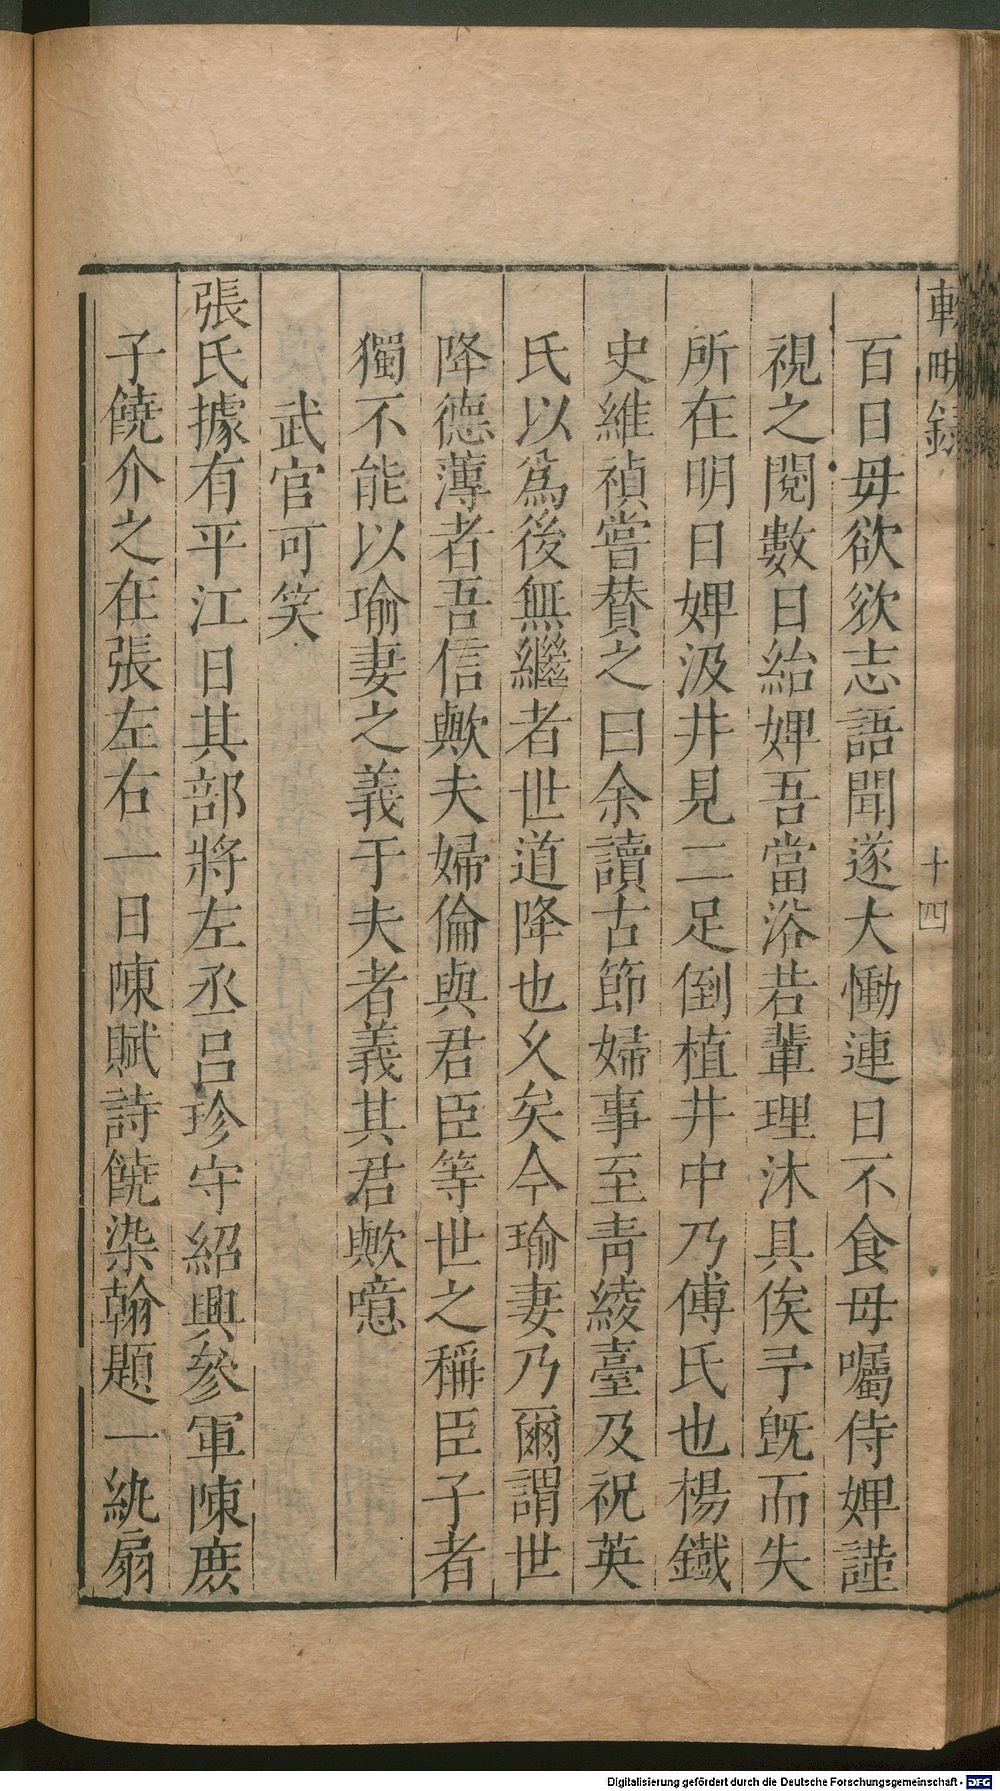 輟畊錄 十四
百日毋欲欲志語聞遂大慟連日不食母囑侍婢謹
視之閱數日紿婢吾當浴若輩理沐具俟予旣而失
所在明日婢汲井見二足倒植井中乃傅氏也楊鐵
史維禎嘗賛之曰余讀古節婦事至靑綾臺及祝英
氏以爲後無繼者世道降也久矣今瑜妻乃爾謂世
降德薄者吾信歟夫婦倫與君臣等世之稱臣子者
獨不能以瑜妻之義于夫者義其君歟噫
武官可笑
張氏據有平江日其部將左丞呂珍守紹興參軍陳庶
子饒介之在張左右一日陳賦詩饒染翰題一紈扇
Digitalisierung gefördert durch die Deutsche Forschungsgemeinschaft - DFG